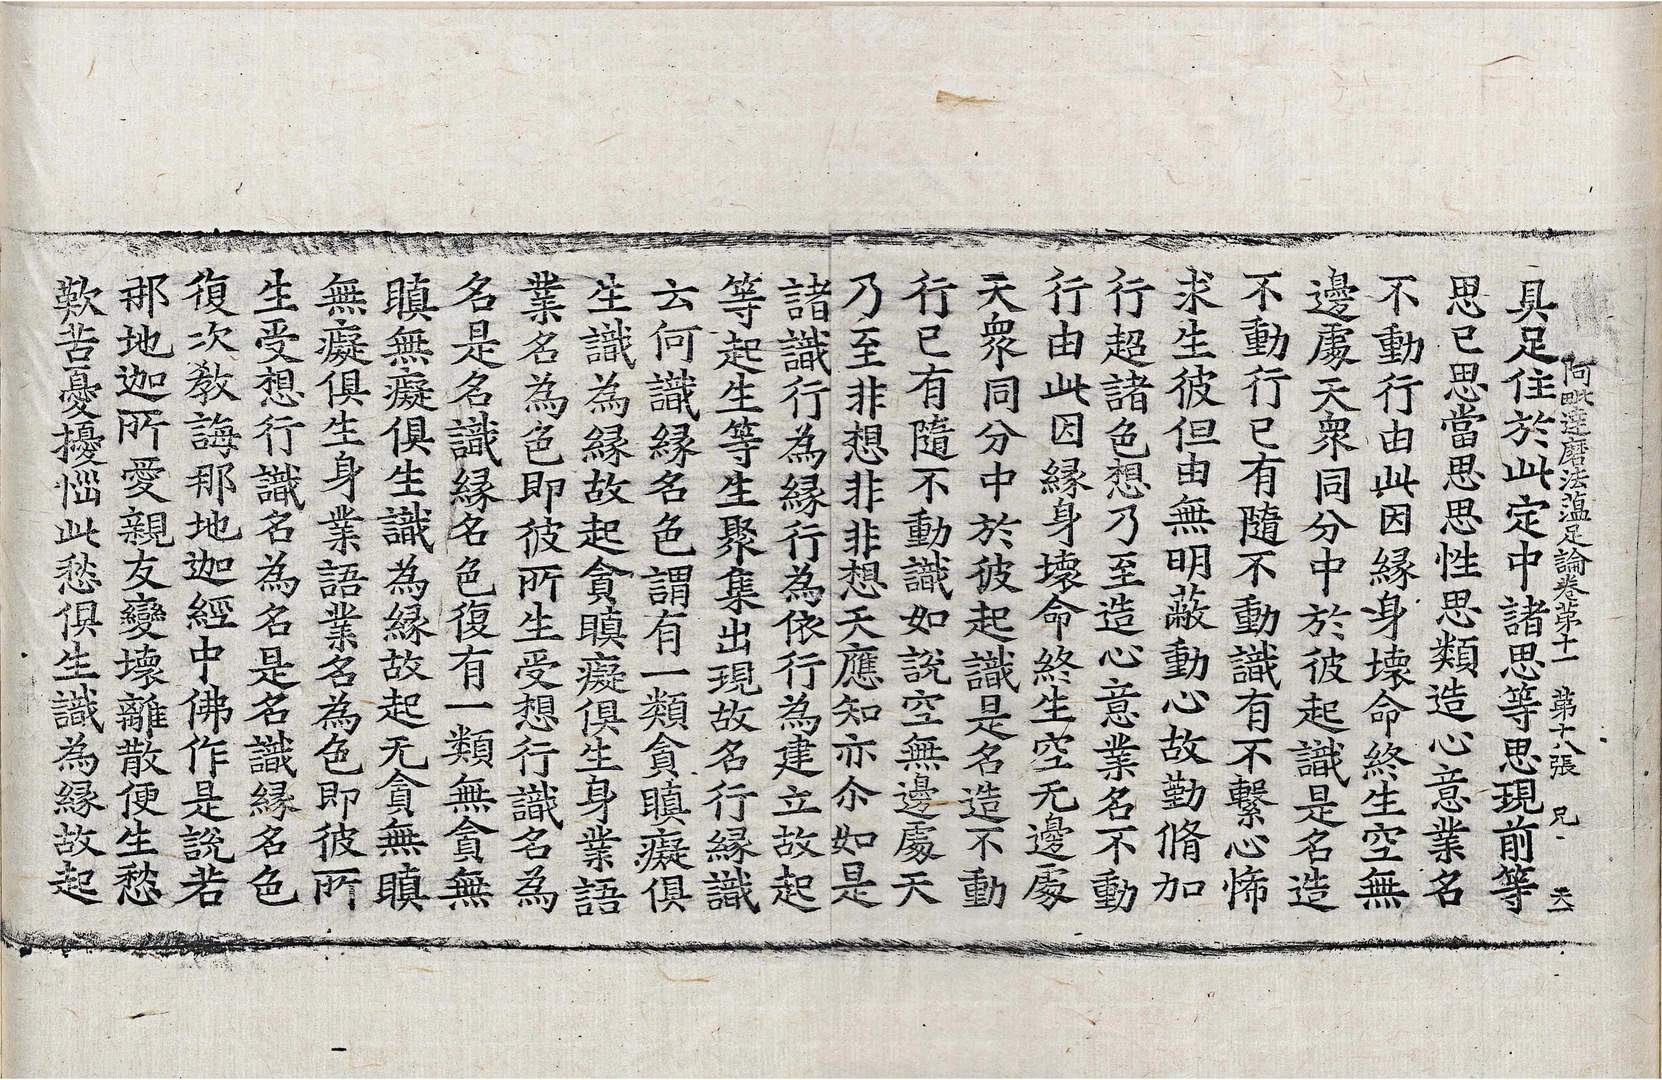 阿毗達磨法蕰足論卷苐十一 苐十八張 兄 天一
具足住於此定中諸思等思現前等
思已思當思思性思類造心意業名
不動行由此因緣身壞命終生空無
邊處天衆同分中於彼起識是名造
不動行已有隨不動識有不繫心悕
求生彼但由無明蔽動心故勤脩加
行超諸色想乃至造心意業名不動
行由此因緣身壞命終生空无邊處
天衆同分中於彼起識是名造不動
行已有隨不動識如說空無邊處天
乃至非想非非想天應知亦尒如是
諸識行為緣行為依行為建立故起
等起生等生聚集出現故名行緣識
云何識緣名色謂有一類貪瞋癡俱
生識為緣故起貪瞋癡俱生身業語
業名為色即彼所生受想行識名為
名是名識緣名色復有一類無貪無
瞋無癡俱生識為緣故起无貪無瞋
無癡俱生身業語業名為色即彼所
生受想行識名為名是名識緣名色
復次教誨那地迦經中佛作是說若
那地迦所愛親友變壞離散便生愁
歎苦憂擾惱此愁俱生識為緣故起